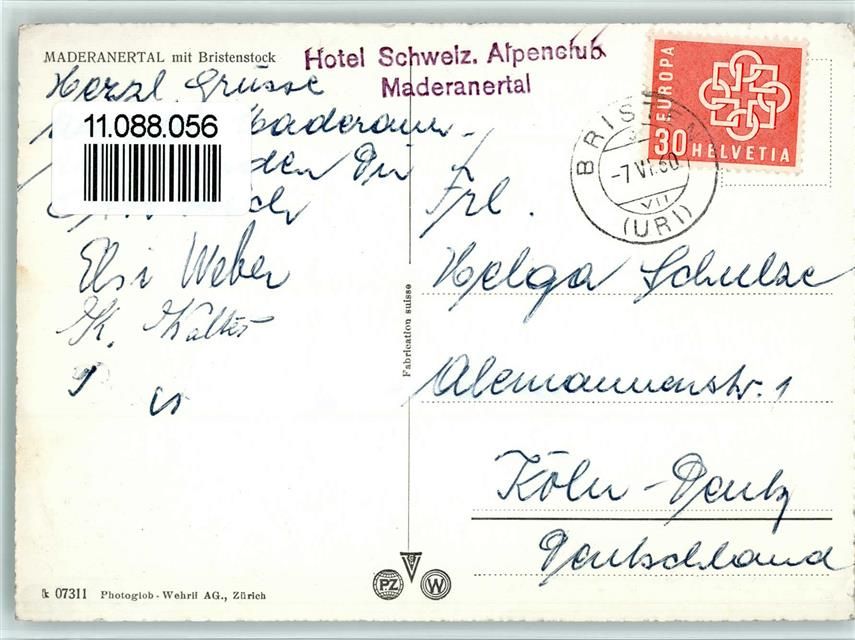 MADERANERTAL mit Bristenstock
Hotel Schweiz. Alpenclub
Maderanertal
Herzl. Grüsse
11.088.056
Maderaner-
den Dir
Elsi Weber
K. Walter
EUROPA
30 HELVETIA
BRISTEN
-7.VI.60
VII
(URI)
Frl.
Helga Schulze
Alemannenstr. 1
Köln-Deutz
Deutschland
Fabrication suisse
k 07311 Photoglob-Wehrli AG., Zürich
PZ
W